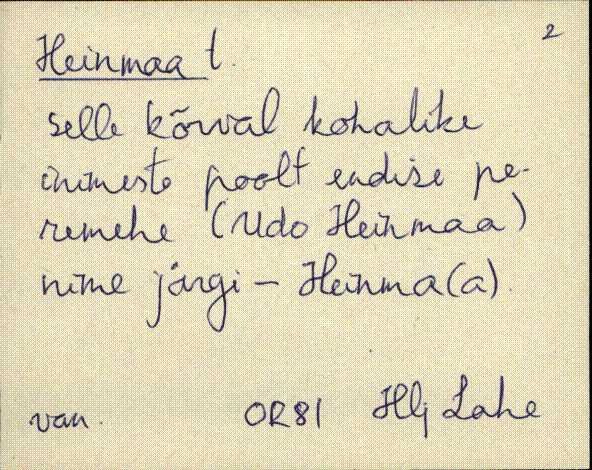 2
Heinmaa t.
selle kõrval kohalike
inimeste poolt endise pe-
remehe (Udo Heinmaa)
nime järgi – Heinma(a).
van. OR81 Hlj Lahe